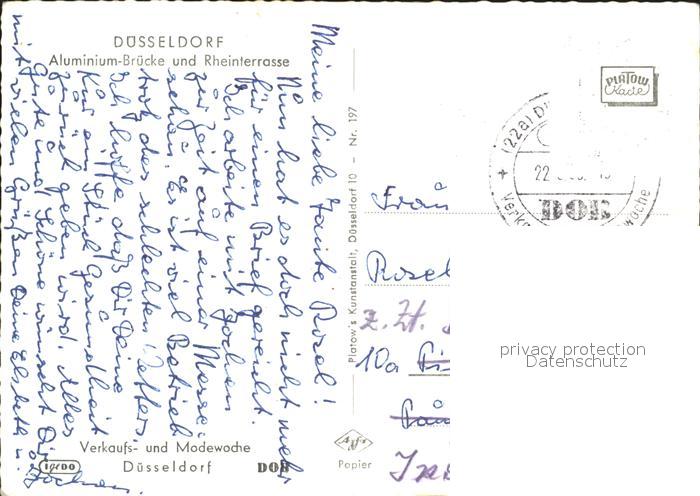 DÜSSELDORF
Aluminium-Brücke und Rheinterrasse
Meine liebe Tante Rosel!
Nun hat es doch nicht mehr
für einen Brief gereicht.
Ich arbeite mit Jochen
zur Zeit auf einer Messe
schau. Es ist viel Betrieb
trotz des schlechten Wetters.
Ich hoffe daß Dir Deine
Kur ein Stück Gesundheit
zurück geben wird. Alles
Gute und Schöne wünscht Dir
mit vielen Grüßen Deine Elsbeth u.
Jochen.
Verkaufs- und Modewoche
Düsseldorf
DOB
igeDO
Platow's Kunstanstalt, Düsseldorf 10 - Nr. 197
Agfa
Papier
PLATOW
Karte
(22a) D
22
DOB
Verk
woche
Frau
Rosel
z. Zt.
10a
privacy protection
Datenschutz